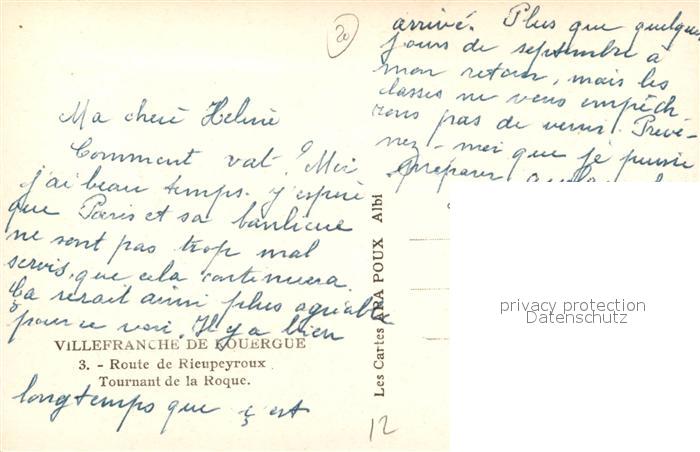 20
Ma chere Helene
Comment vat? Moi
j'ai beau temps. J'espere
que Paris et sa banlieue
ne sont pas trop mal
servis, que cela continuera.
Ça serait ainsi plus agréable
pour ce voir. Il y a bien
VILLEFRANCHE DE ROUERGUE
3. - Route de Rieupeyroux
Tournant de la Roque.
longtemps que ç'est
arrivé. Plus que quelques
jours de septembre à
mon retour, mais les
classes ne vous empêch-
rons pas de venir. Preve-
nez-moi que je puisse
préparer
Les Cartes APA POUX Albi
12
privacy protection
Datenschutz